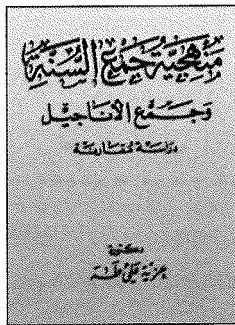 منهجية جمع السنة
وجمع الأناجيل
دراسة مقارنة
دكتورة
عزية علي طه